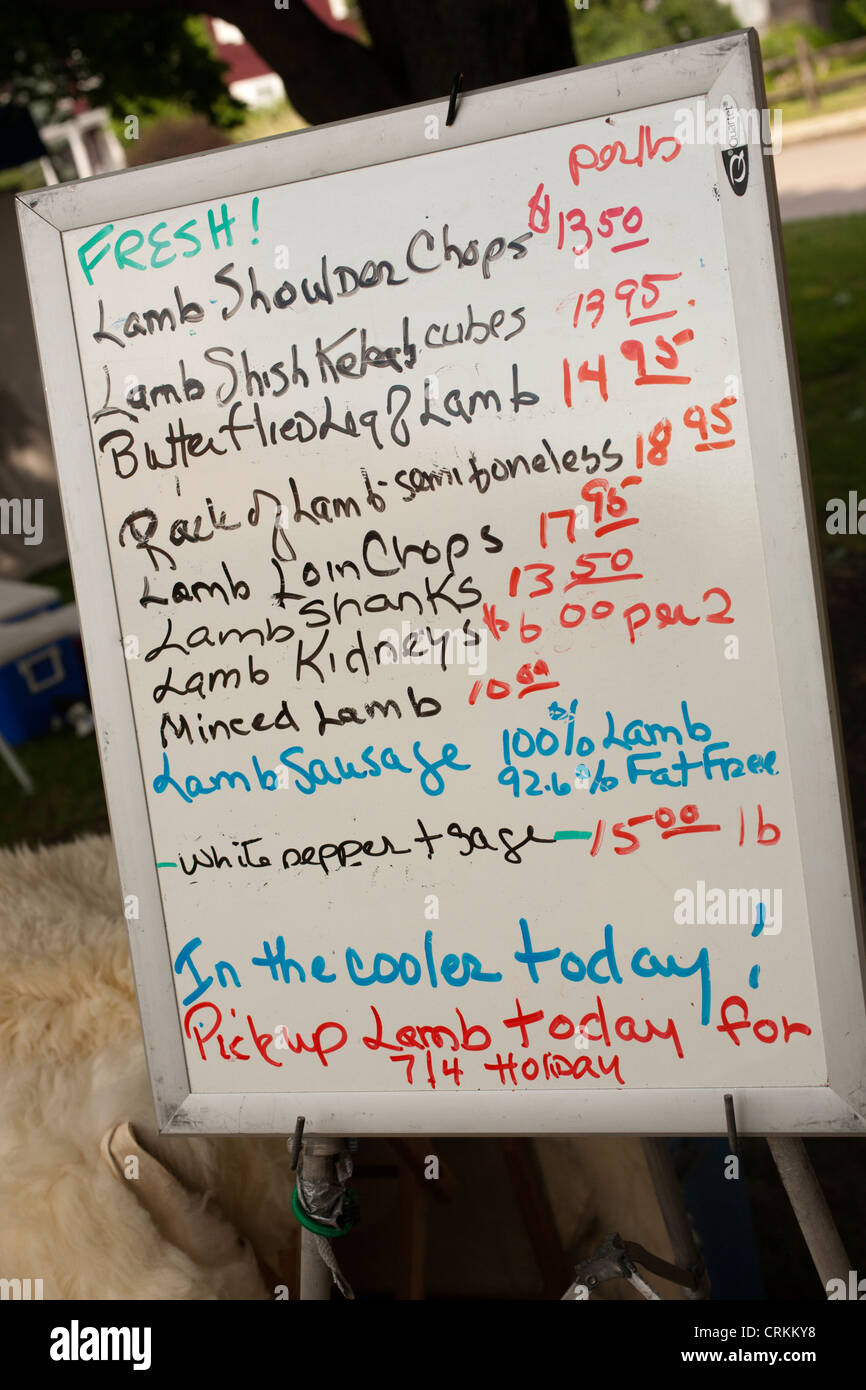 per/lb
Quartet
FRESH!
Lamb Shoulder Chops $13 50
Lamb Shish Kebab cubes 13 95
Butterflied Leg of Lamb 14 95
Rack of Lamb - semi boneless 18 95
Lamb Loin Chops 17 95
Lamb Shanks 13 50
Lamb Kidneys $6 00 per 2
Minced Lamb 10 00
Lamb Sausage 100% Lamb
92.6% Fat Free
- White pepper + sage - 15 00 lb
In the cooler today!
Pickup Lamb today for
7/4 Holiday
alamy
Image ID: CRKKY8
www.alamy.com